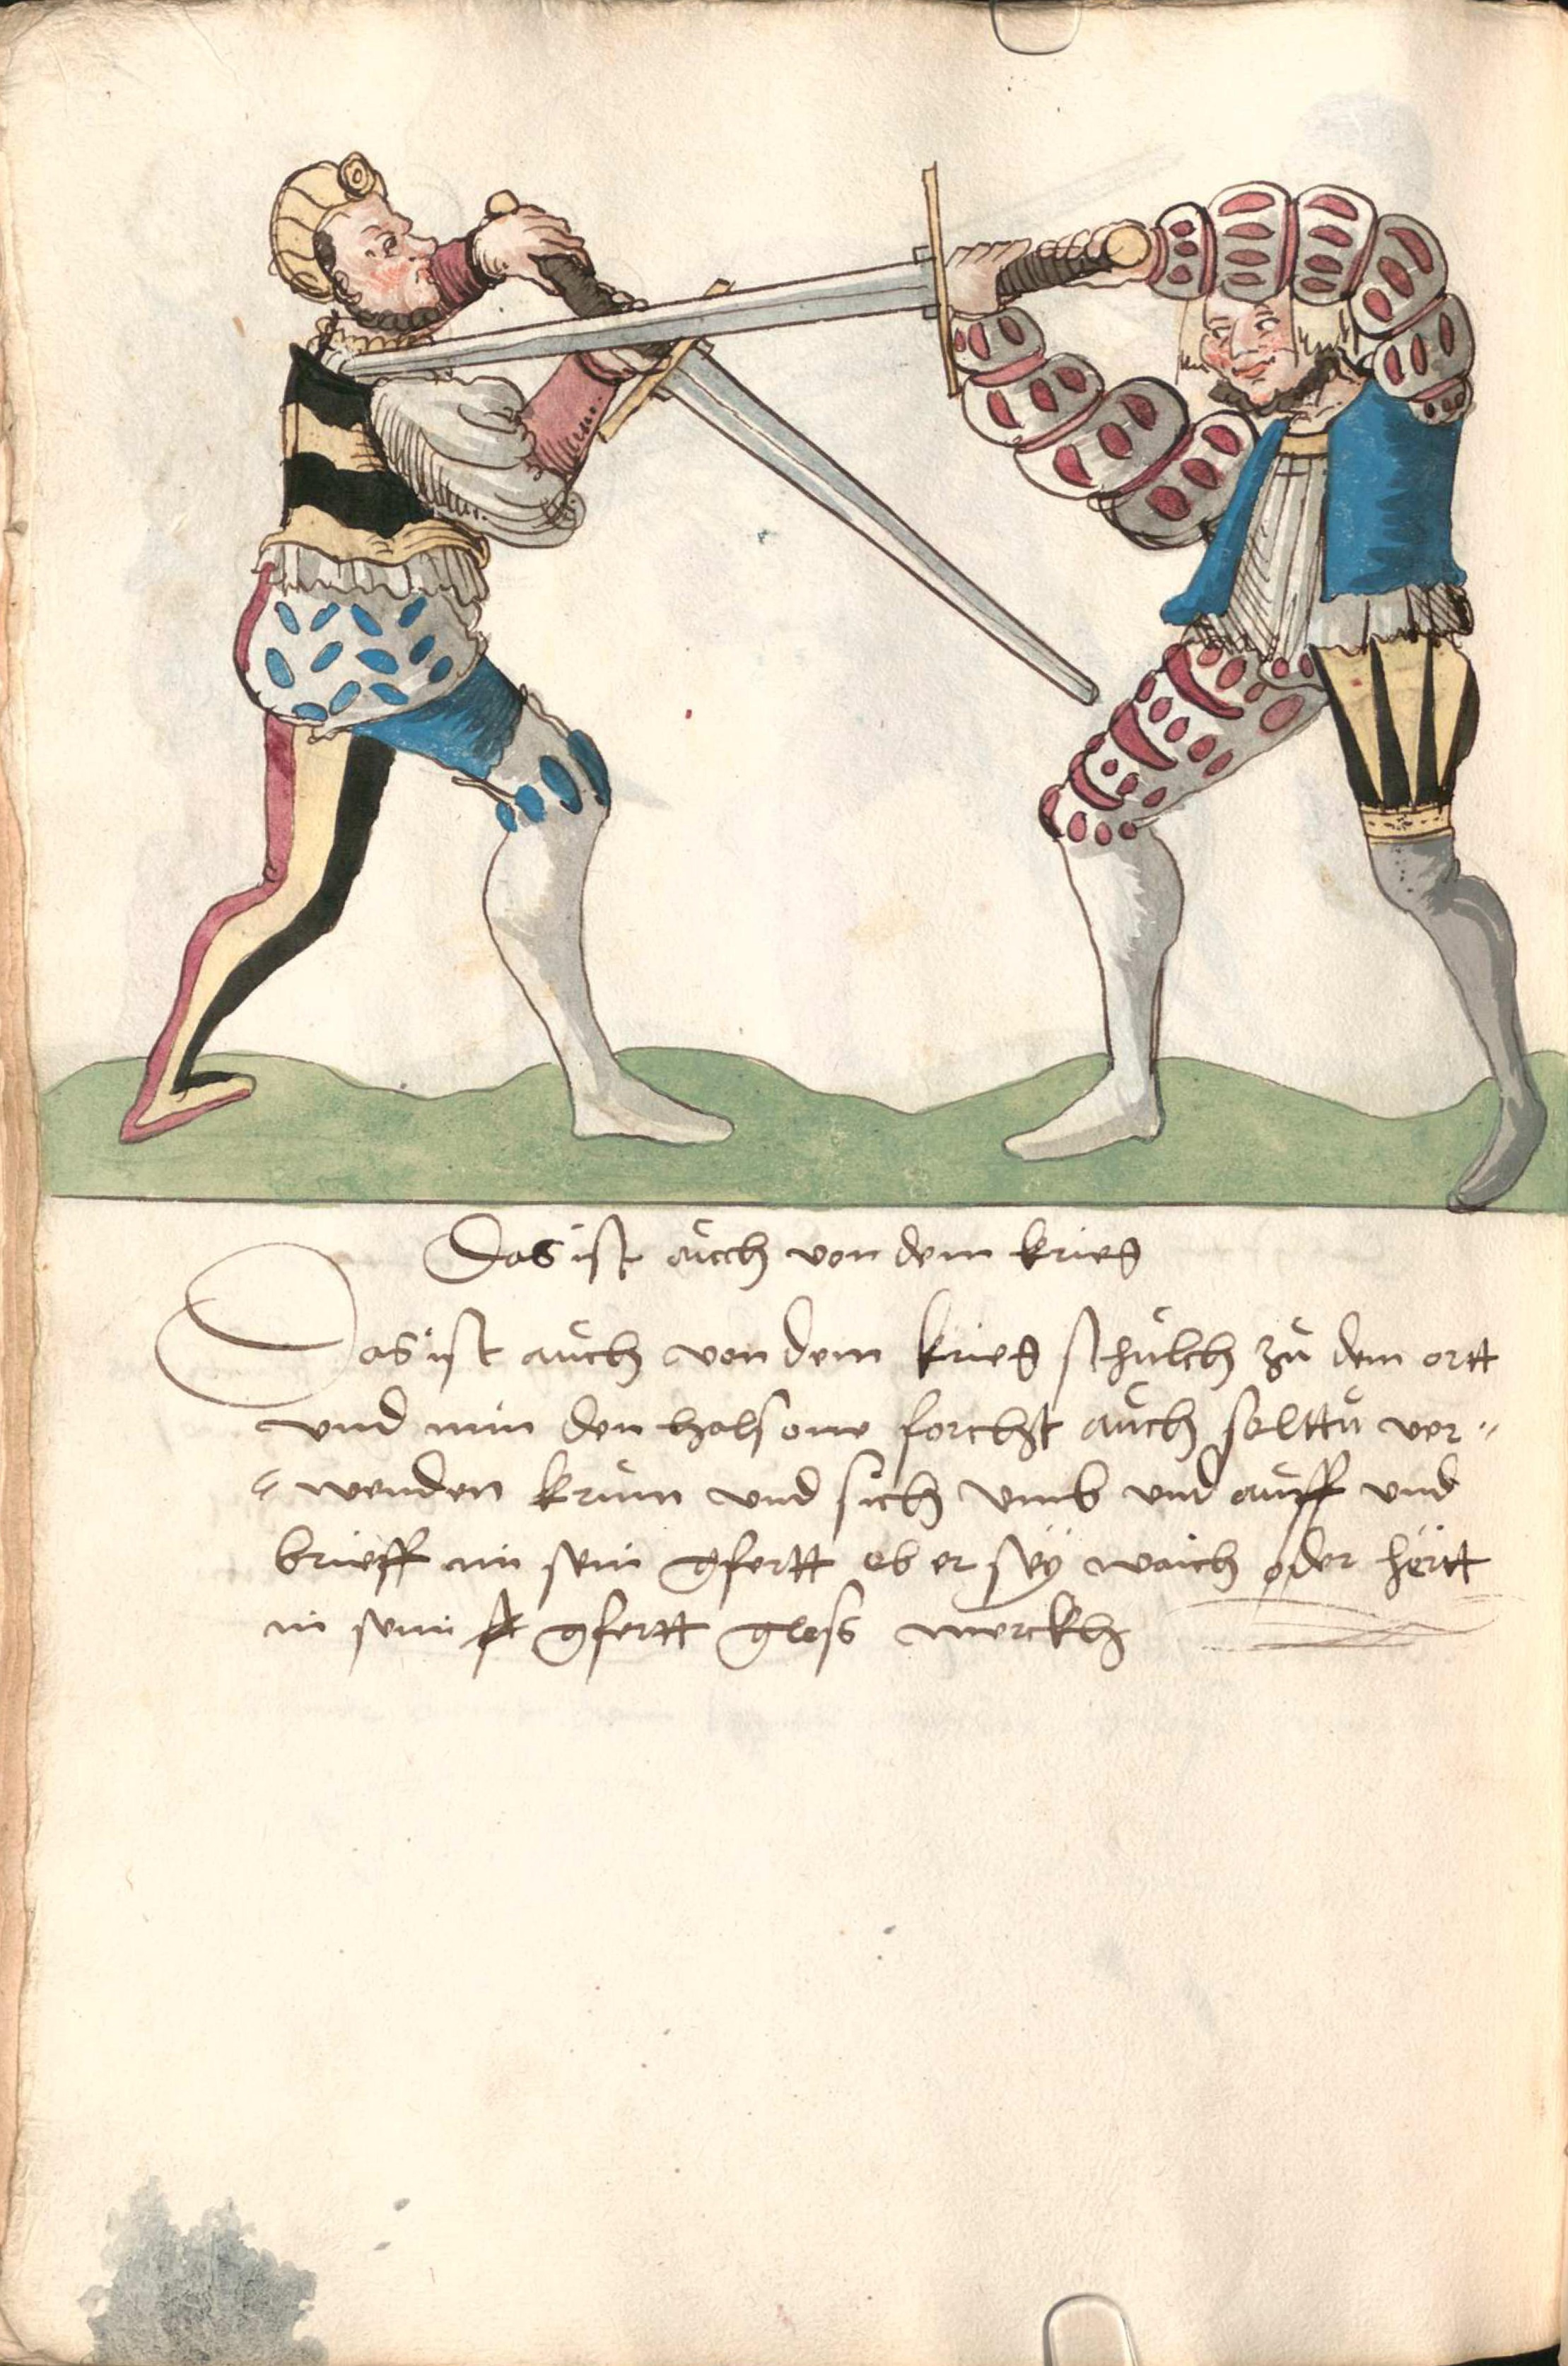 Das ist aůch von dem krieg
Das ist aůch von dem krieg schilch zů dem ortt
vnd nim den hals one forchſt aůch solttů ver„
„wenden krům vnd sich vmb vnd aůff vnd
brieff im sein gfertt ob er sey waich oder hërtt
in seim gfertt gloss merckh